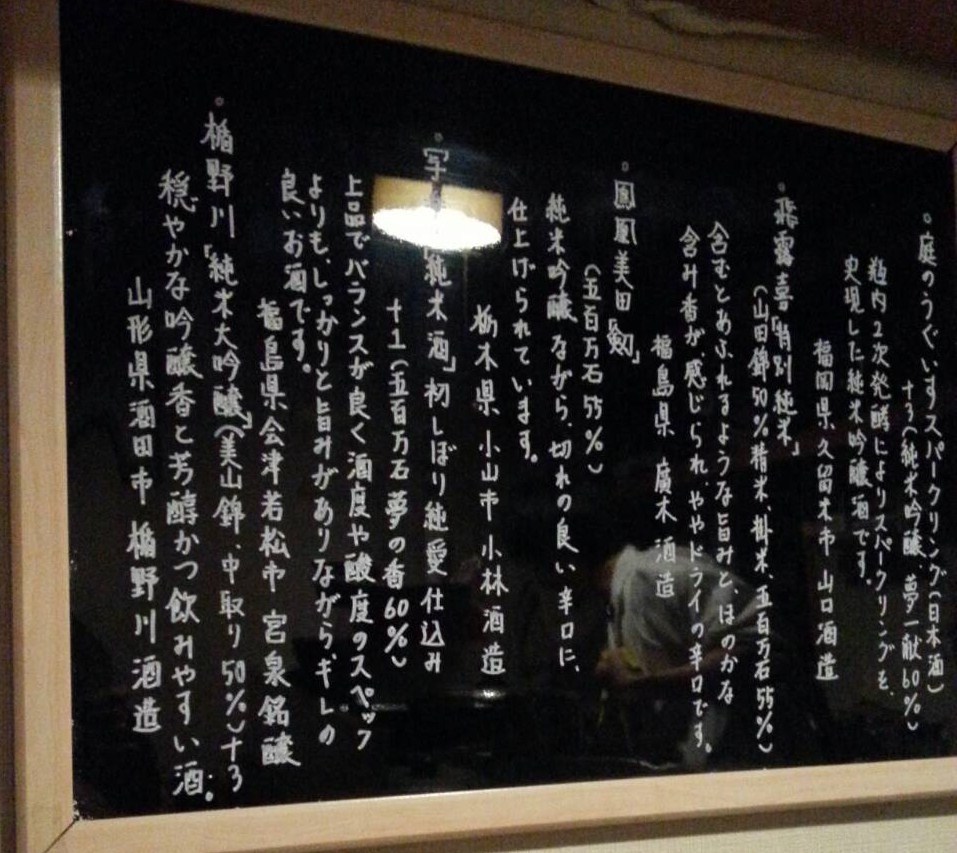 。庭のうぐいすスパークリング(日本酒)
+3(純米吟醸、夢一献60%)
瓶内2次発酵によりスパークリングを、
史現した純米吟醸酒です。
福岡県久留米市 山口酒造
。飛露喜「特別純米」
(山田錦50%精米、掛米、五百万石55%)
含むとあふれるような旨みと、ほのかな
含み香が、感じられ、ややドライの辛口です。
福島県 廣木酒造
。鳳凰美田「剱」
(五百万石55%)
純米吟醸ながら、切れの良い辛口に、
仕上げられています。
栃木県小山市小林酒造
。写 「純米酒」初しぼり純愛仕込み
+1(五百万石夢の香60%)
上品でバランスが良く酒度や酸度のスペック
よりも、しっかりと旨みがありながらギレの
良いお酒です。
福島県会津若松市 宮泉銘醸
。楯野川「純米大吟醸」(美山錦、中取り50%)+3
穏やかな吟醸香と芳醇かつ飲みやすい酒。
山形県酒田市楯野川酒造